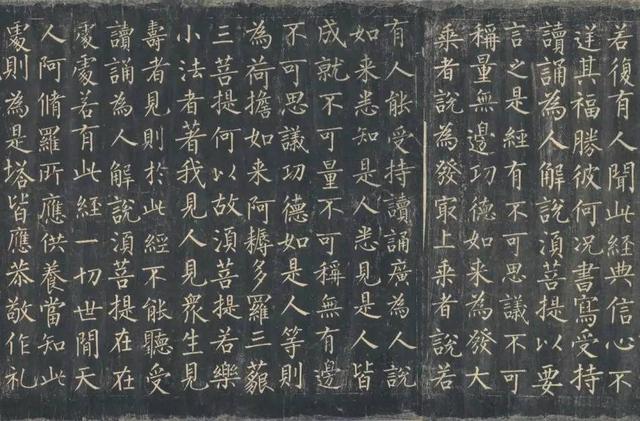 若復有人聞此經典信心不
逆其福勝彼何况書寫受持
讀誦為人解說湏菩提以要
言之是經有不可思議不可
稱量無邊功德如来為發大
乘者說為發㝡上乘者說若
有人能受持讀誦廣為人說
如来悉知是人悉見是人皆
成就不可量不可稱無有邊
不可思議功德如是人等則
為荷擔如来阿耨多羅三藐
三菩提何以故湏菩提若樂
小法者著我見人見衆生見
壽者見則於此經不能聽受
讀誦為人解說湏菩提在在
處處若有此經一切世間天
人阿脩羅所應供養當知此
處則為是塔皆應恭敬作礼